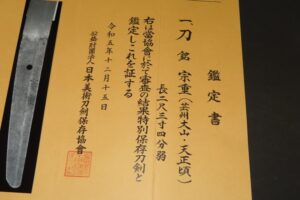 鑑定書
一、刀 銘 宗重(芸州大山・天正頃)
長二尺三寸四分弱
右は當協會に於て審査の結果特別保存刀剣と
鑑定しこれを証する
令和五年十二月十五日
公益財団法人日本美術刀剣保存協會